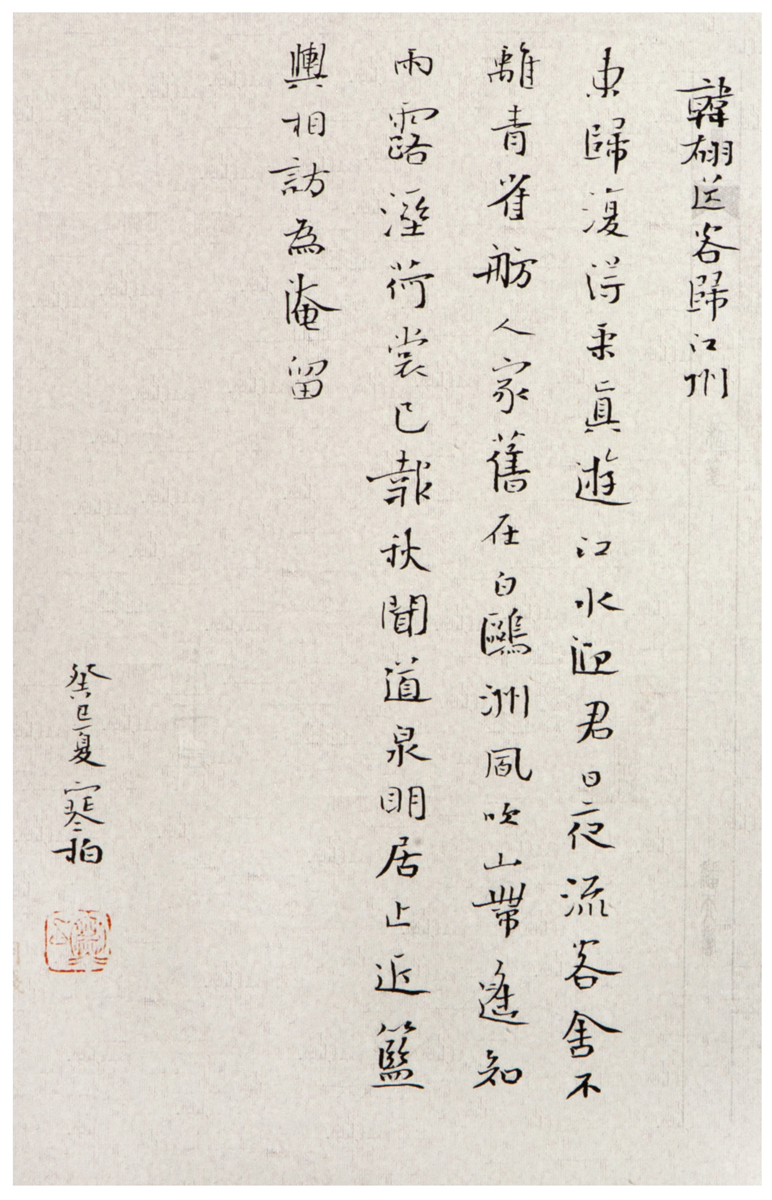 韓翃送客歸江州
東歸復得采真遊江水迎君日夜流客舍不
離青雀舫人家舊在白鷗洲風吹山帶遙知
雨露溼荷裳已報秋聞道泉明居止近籃
輿相訪為淹留
癸巳夏